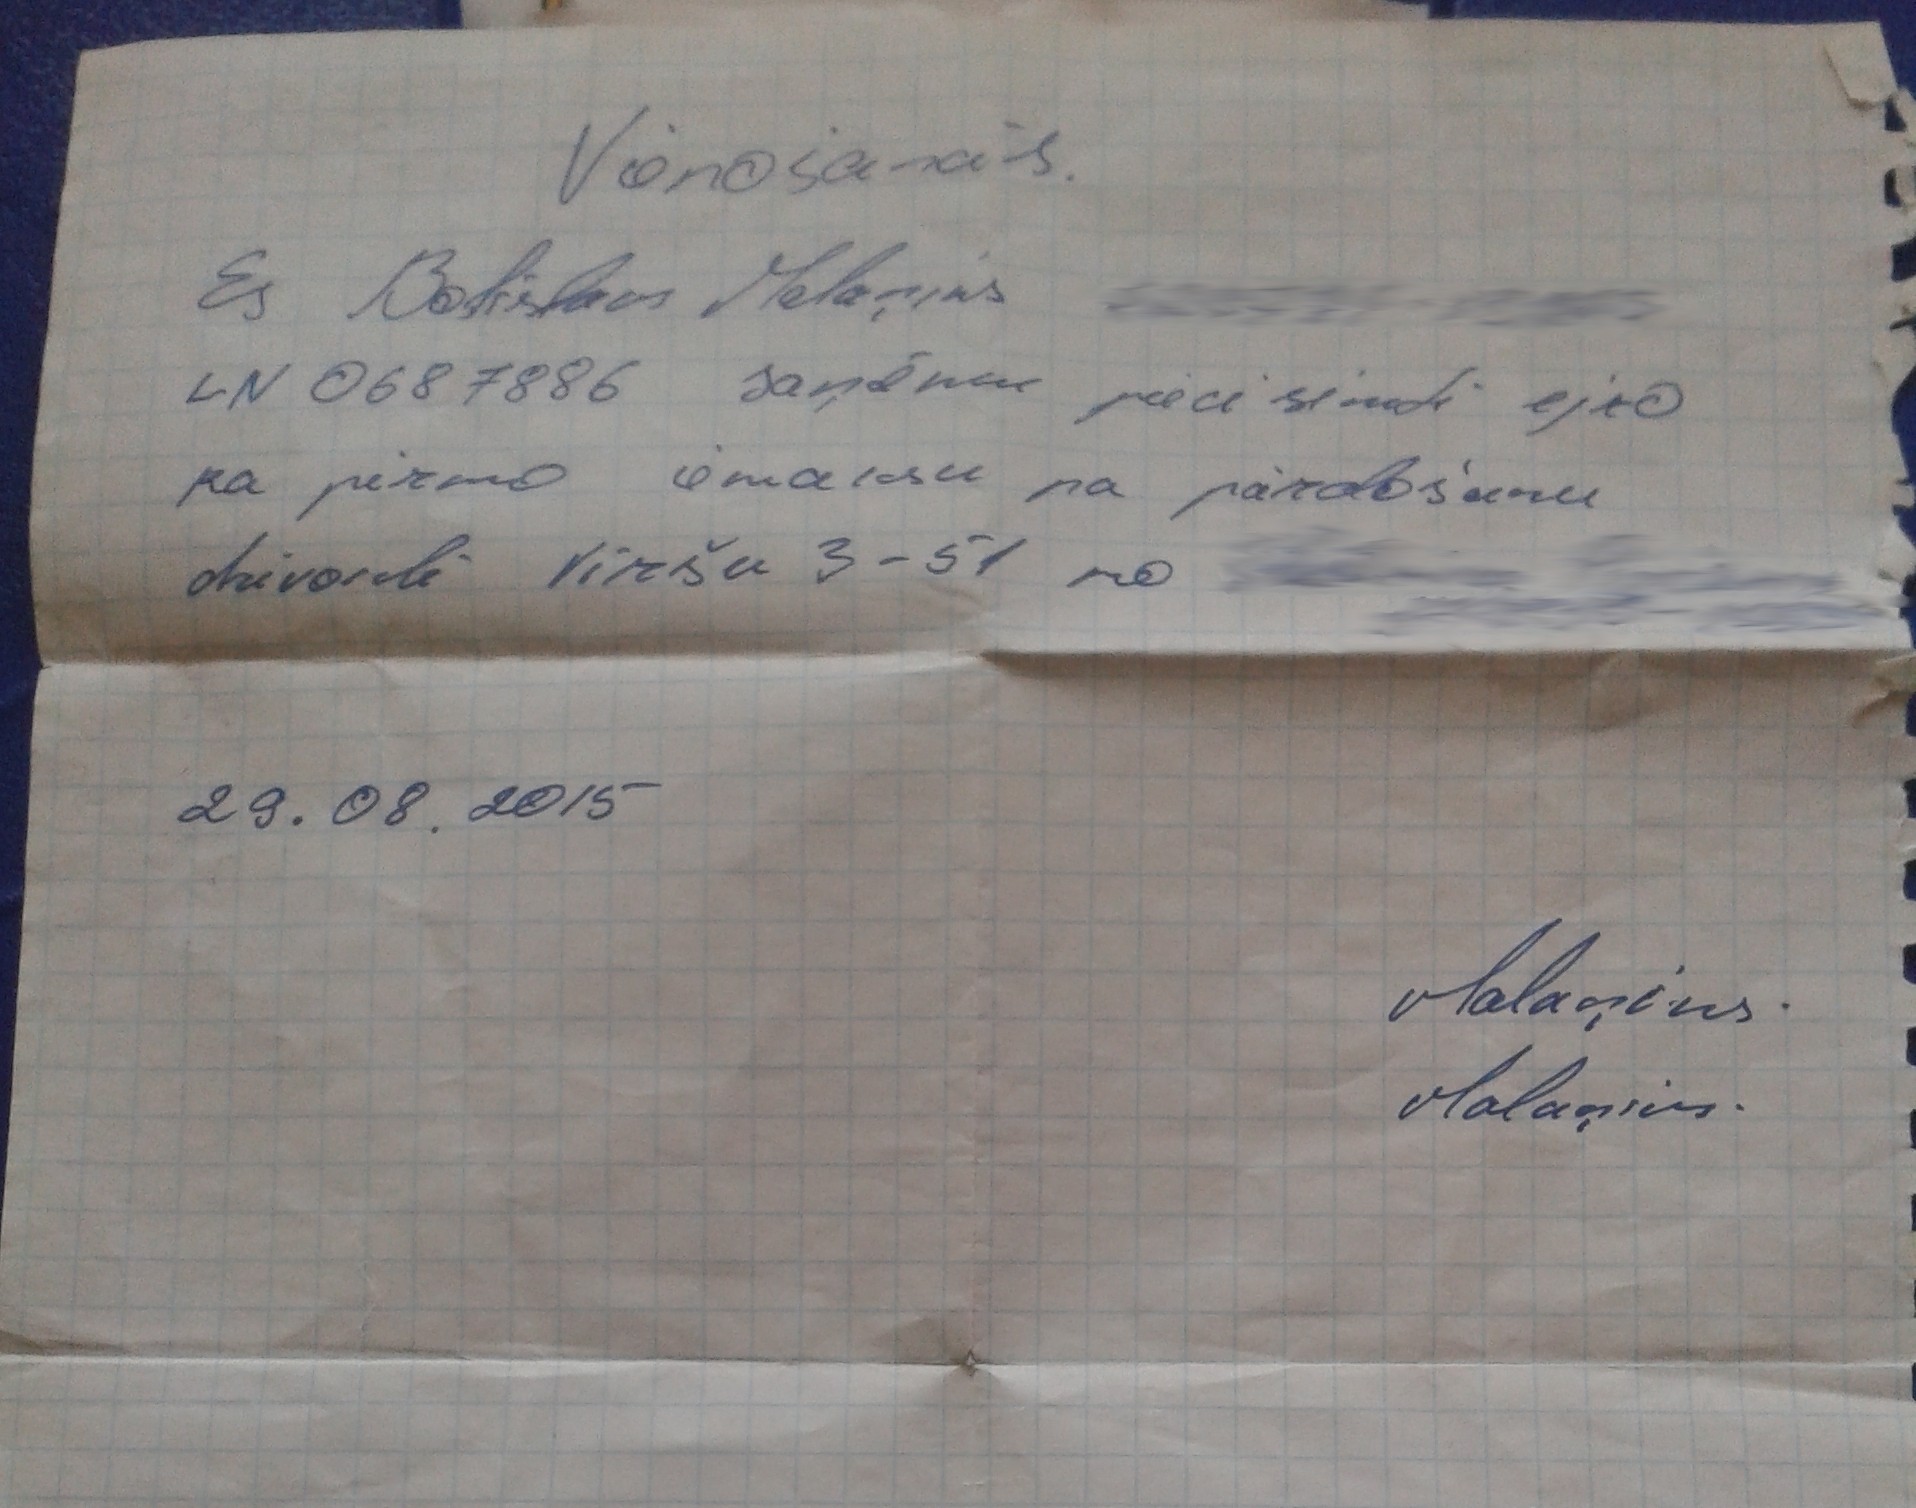 Vienošanās.
Es Boļislavs Malaņins
LN 0687886 saņēmu pieci simti ejro
ka pirmo iemaksu pa pārdošanu
dzivokli Viršu 3-51 no
29.08.2015
Malaņins.
Malaņins.